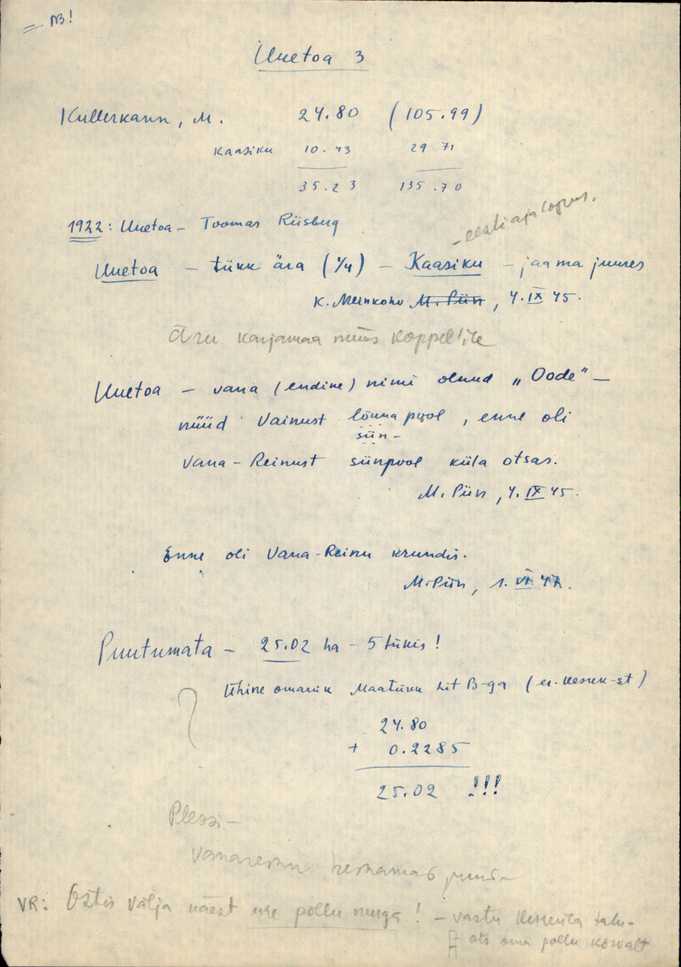 NB!
Uuetoa 3
Kullerkann, M. 24.80 (105.99)
Kaasiku 10.43 29 71
35.23 135.70
1922: Uuetoa – Toomas Riisberg
– eesti aja lõpus.
Uuetoa – tükk ära (1/4) – Kaasiku – jaama juures
K. Meinkohv M. Piin, 4. IX 45.
Äru karjamaa nüüs koppel
Uuetoa – vana (endine) nimi olnud „Oode" –
nüüd Vainust lõuna pool, enne oli
siin-
Vana-Reinust siinpool küla otsas.
M. Piin, 4. IX 45.
Enne oli Vana-Reinu krundis.
M. Piin, 1. VI 47.
Puutumata – 25.02 ha – 5 tükis!
Ühine omanik Maatükk Lit B-ga
24.80
+ 0.2285
25.02 !!!
?
Plessi –
VR: Ostis välja
pollu nurga! – vastu
ots oma pollu körvalt